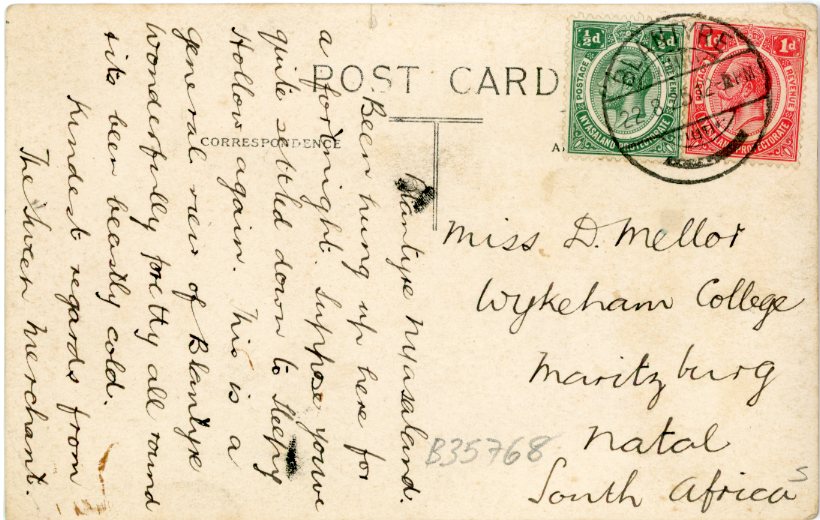 POST CARD
CORRESPONDENCE
Blantyre Nyasaland.
Been hung up here for
a fortnight. Suppose you've
quite settled down to Sleepy
Hollow again. This is a
general view of Blantyre
wonderfully pretty all round
its been beastly cold.
Kindest regards from
The Sween Merchant.
½d ½d
POSTAGE
NYASALAND PROTECTORATE
1d 1d
POSTAGE REVENUE
PROTECTORATE
BLANTYRE
Miss D. Mellor
Wykeham College
Maritzburg
Natal
South Africa
S
B35768